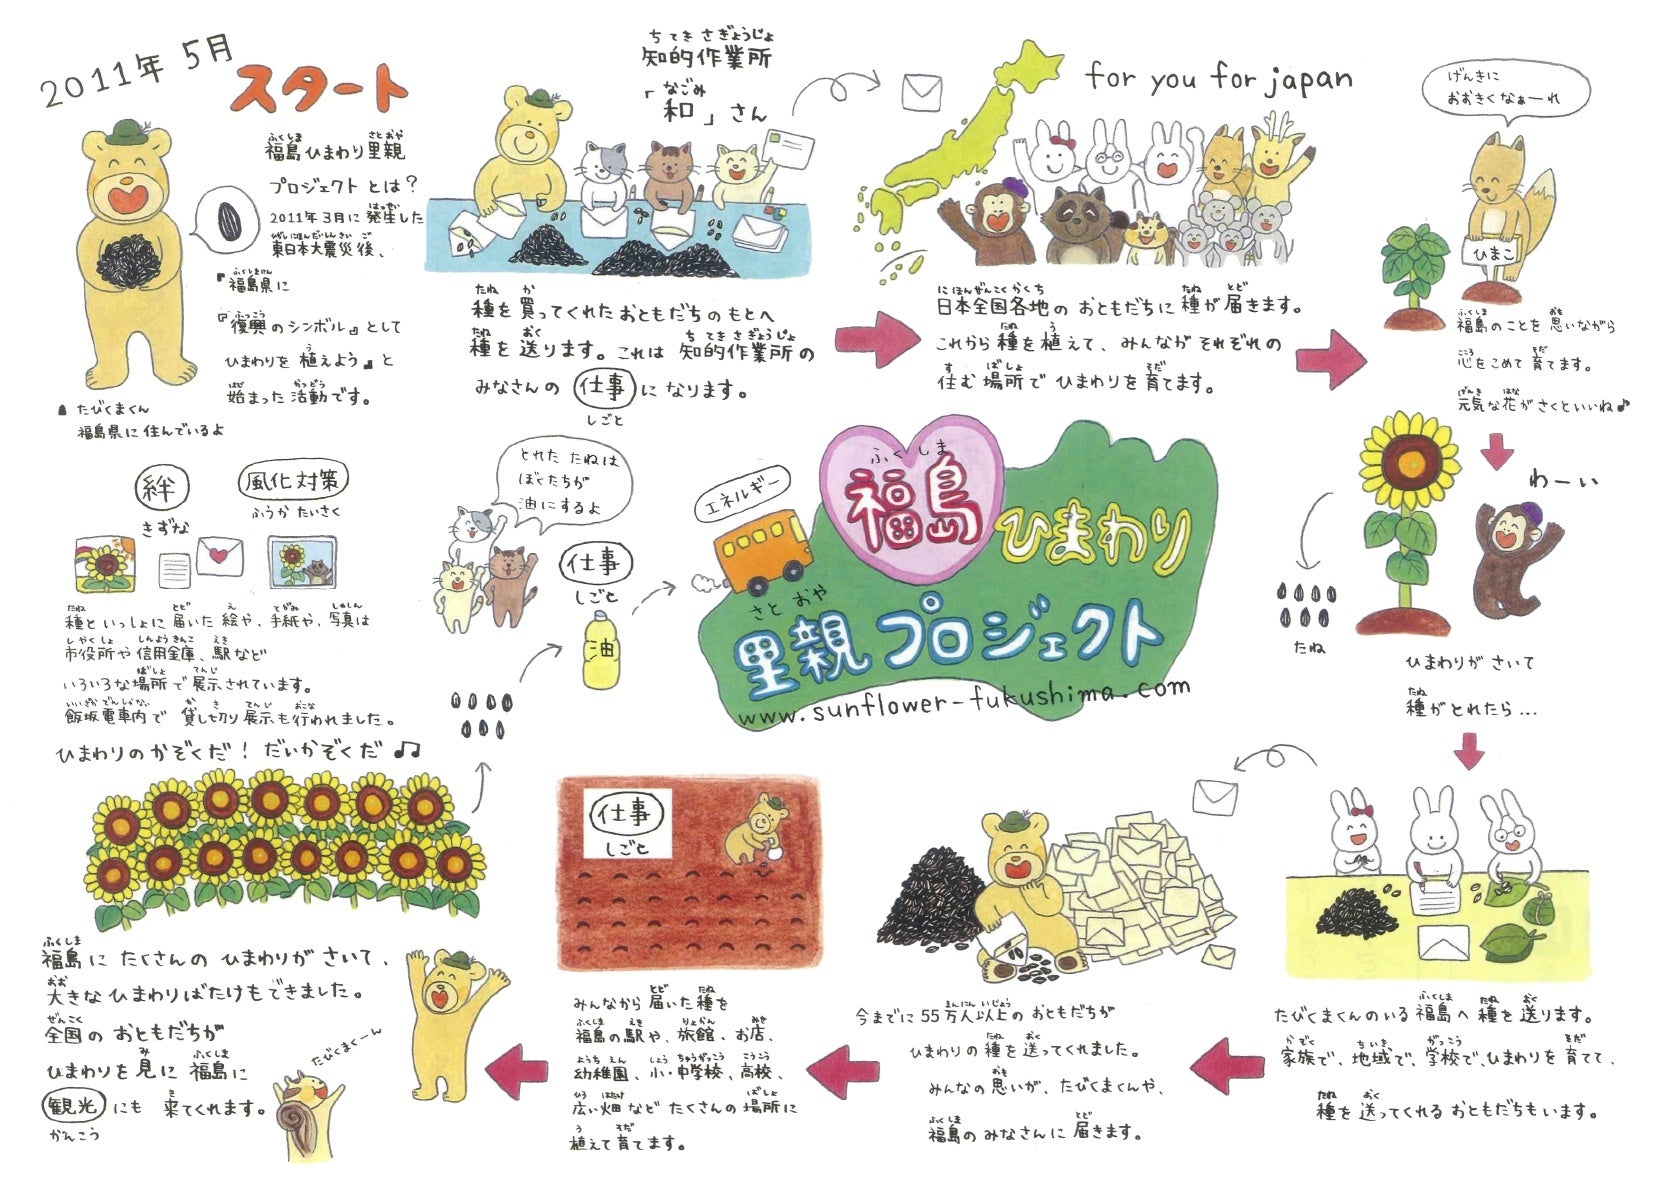 2011年 5月
スタート
福島ひまわり里親
プロジェクトとは？
2011年3月に発生した
東日本大震災後、
『福島県に
『復興のシンボル』として
ひまわりを植えよう』と
始まった活動です。
▲たびくまくん
福島県に住んでいるよ
知的作業所
「和」さん
種を買ってくれたおともだちのもとへ
種を送ります。これは知的作業所の
みなさんの仕事になります。
しごと
for you for japan
日本全国各地のおともだちに種が届きます。
これから種を植えて、みんながそれぞれの
住む場所でひまわりを育てます。
げんきに
おおきくなぁーれ
ひまこ
福島のことを思いながら
心をこめて育てます。
元気な花がさくといいね♪
わーい
たね
ひまわりがさいて
種がとれたら…
たびくまくんのいる福島へ種を送ります。
家族で、地域で、学校で、ひまわりを育てて、
種を送ってくれるおともだちもいます。
今までに55万人以上のおともだちが
ひまわりの種を送ってくれました。
みんなの思いが、たびくまくんや、
福島のみなさんに届きます。
仕事
しごと
みんなから届いた種を
福島の駅や、旅館、お店、
幼稚園、小・中学校、高校、
広い畑などたくさんの場所に
植えて育てます。
福島にたくさんのひまわりがさいて、
大きなひまわりばたけもできました。
全国のおともだちが
ひまわりを見に福島に
観光にも来てくれます。
かんこう
たびくまくーん
ひまわりのかぞくだ！だいかぞくだ♫
絆
きずな
風化対策
ふうかたいさく
種といっしょに届いた絵や、手紙や、写真は
市役所や信用金庫、駅など
いろいろな場所で展示されています。
飯坂電車内で貸し切り展示も行われました。
とれたたねは
ぼくたちが
油にするよ
仕事
しごと
油
エネルギー
ふくしま
福島ひまわり
さとおや
里親プロジェクト
www.sunflower-fukushima.com